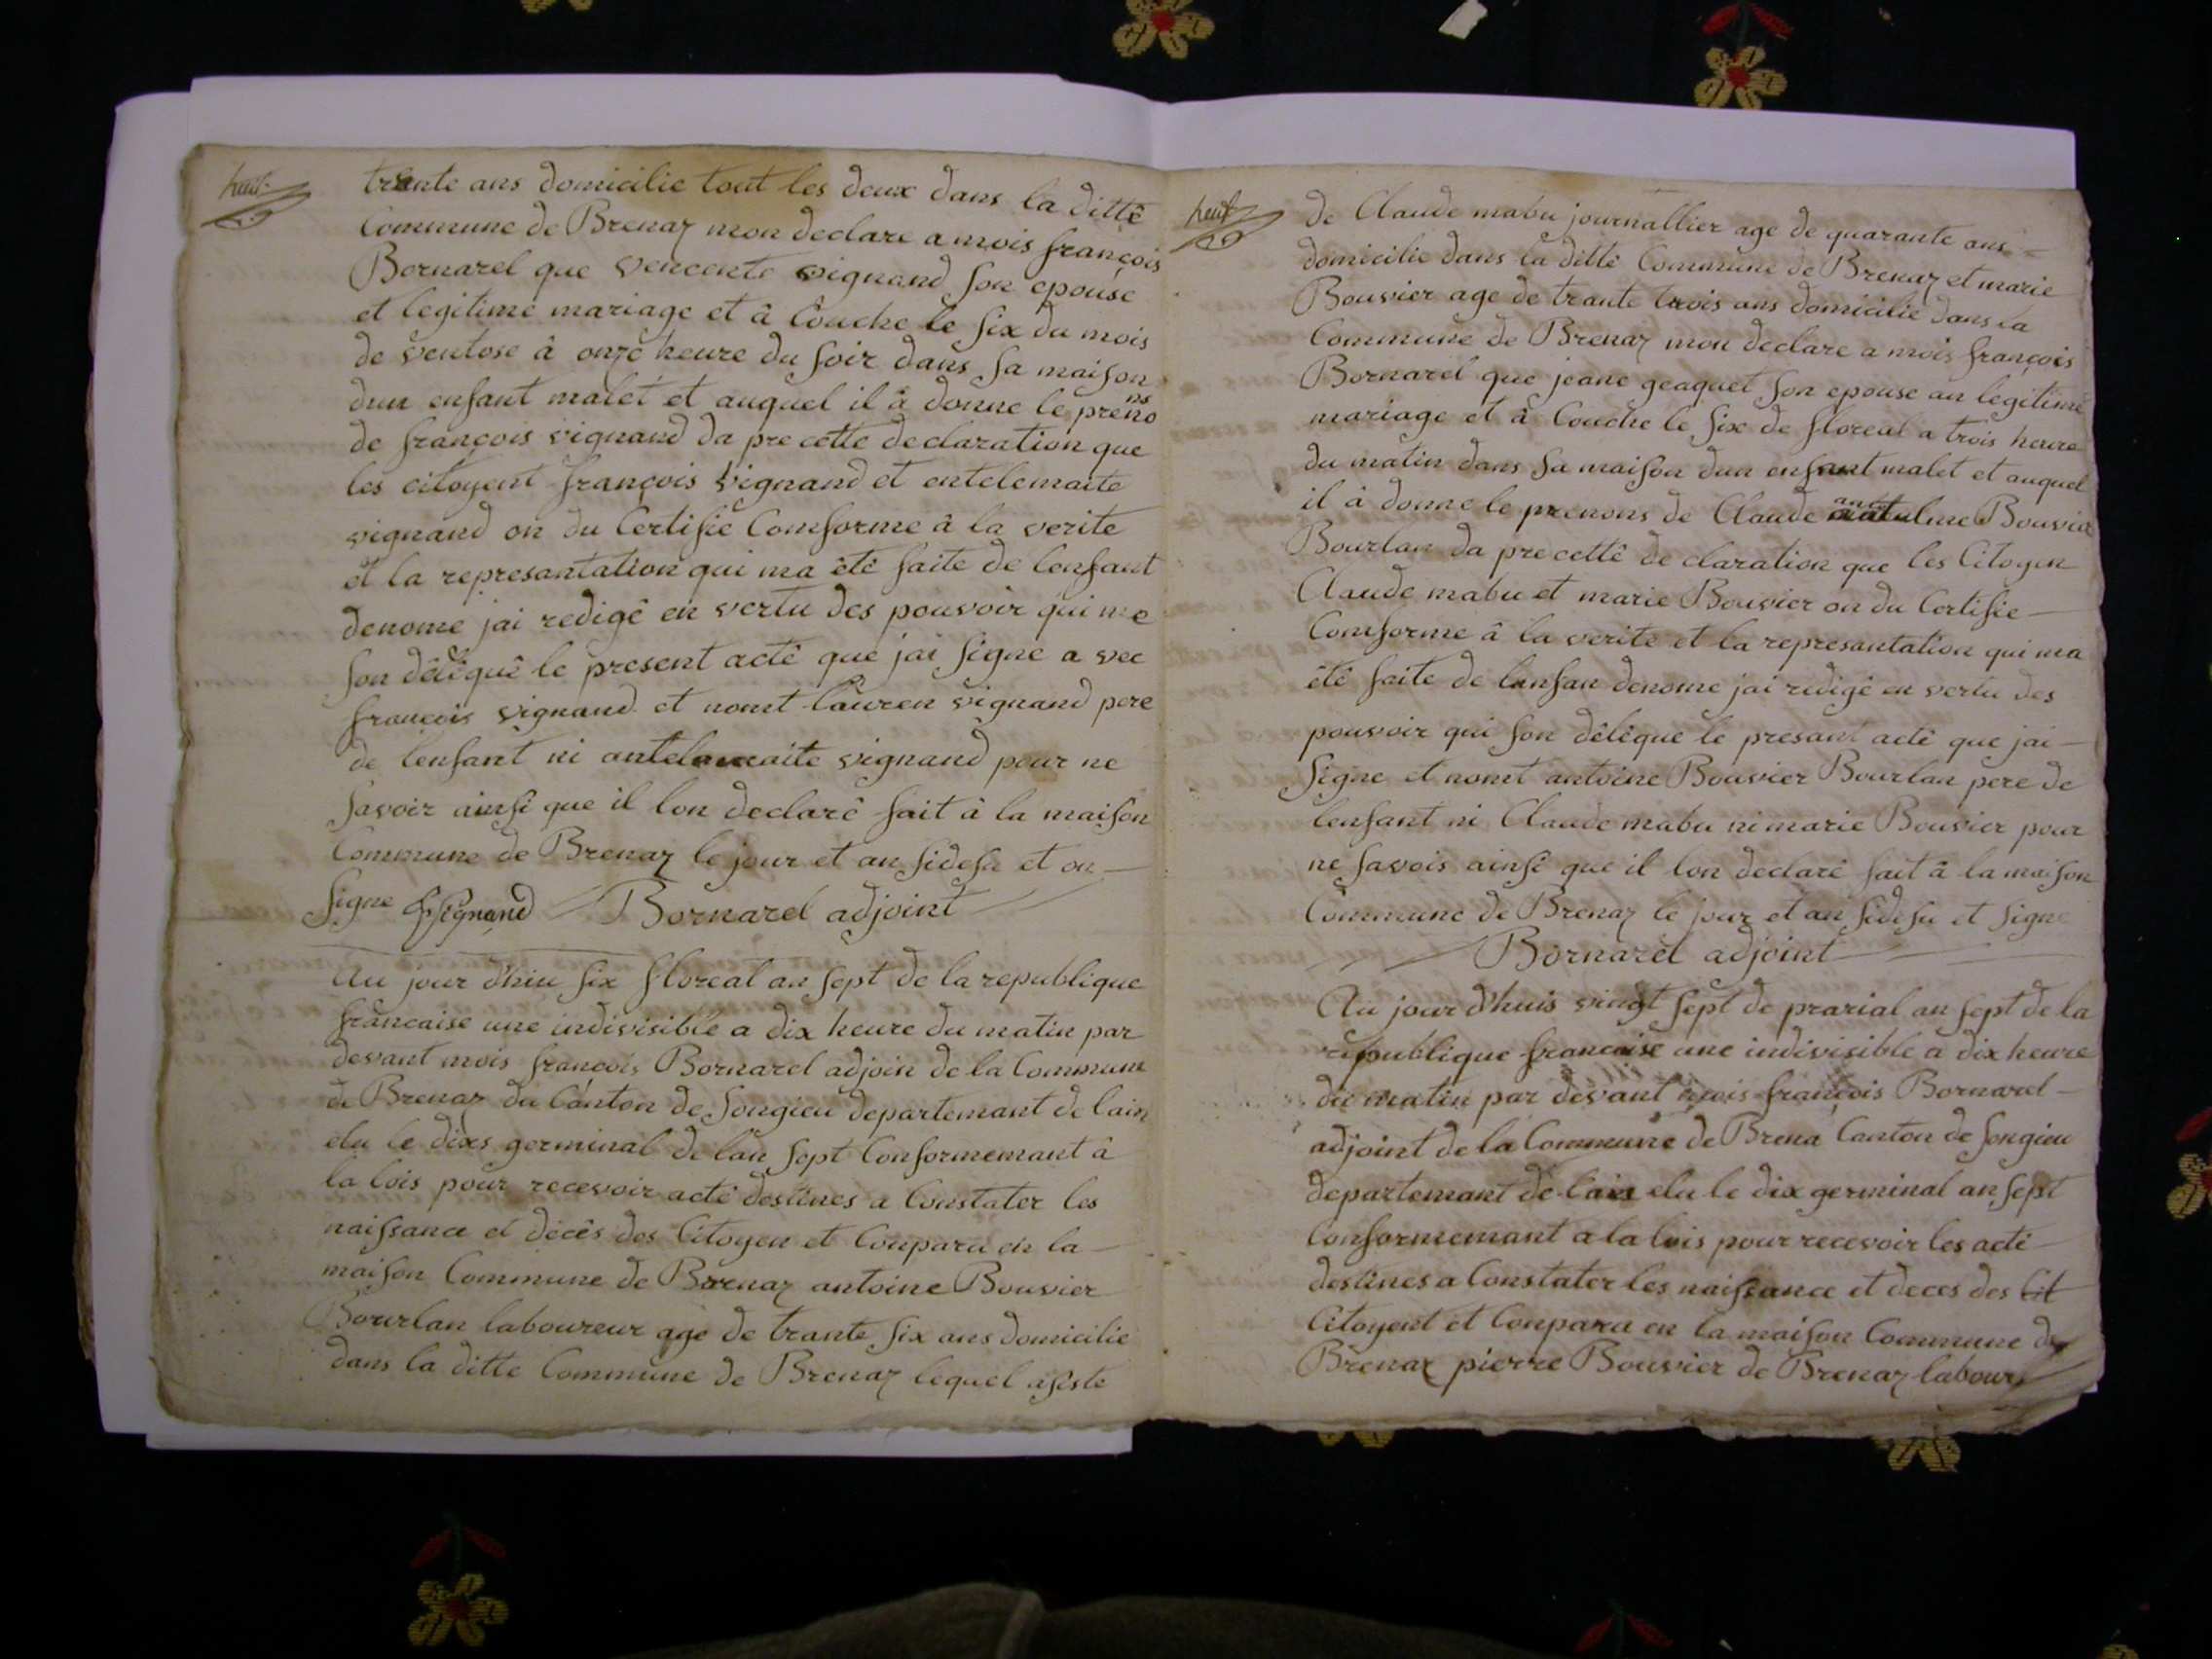 huit
trente ans domicilie tout les deux dans la ditte
Commune de Brenaz mon declare a mois françois
Bornarel que vencente vignand son epouse
et legitime mariage et â Couche le six du mois
de ventose â onze heure du soir dans sa maison
dun enfant malet et auquel il â donne le preno ns
de françois vignand da pre cette declaration que
les citoyent françois vignand et entelemaite
vignand on du Certifie Comforme â la verite
et la represantation qui ma êtê faite de lenfant
denome jai redigê en vertu des pouvoir qui me
son dêlêguê le present actê que jai signe a vec
françois vignand et nomt lauren vignand pere
de lenfant ni vignand pour ne
savoir ainsi que il lon declarê fait â la maison
Commune de Brenaz le jour et an sidesu et on
signe fvignand Bornarel adjoint
Au jour dhiu six floreal an sept de la republique
francaise une indivisible a dix heure du matin par
devant mois françois Bornarel adjoin de la Commune
de Brenaz du Canton de songieu departemant de lain
elu le dixs germinal de lan sept Conformemant â
la lois pour recevoir actê destines a Constater les
naissance et dêcês des Citoyen et Conparu en la
maison Commune de Brenaz antoine Bouvier
Bourlan laboureur age de trante six ans domicilie
dans la ditte Commune de Brenaz lequel asiste
neuf
de Claude mabu journallier age de quarante ans
domicilie dans la ditte Commune de Brenaz et marie
Bouvier age de trante trois ans domicilie dans la
Commune de Brenaz mon declare a mois françois
Bornarel que jeane geaquet son epouse an legitime
mariage et â Couche le six de floreal a trois heure
du matin dans sa maison dun enfant malet et auquel
il â donne le prenons de Claude Bouvier
Bourlan da pre cettê de claration que les Citoyen
Claude mabu et marie Bouvier on du Certifie
Comforme â la verite et la represantation qui ma
êtê faite de lanfan denome jai redigê en vertu des
pouvoir qui son dêlêque le presant actê que jai
signe et nomt antoine Bouvier Bourlan pere de
lenfant ni Claude mabu ni marie Bouvier pour
ne savois ainsi que il lon declarê fait â la maison
Commune de Brenaz le jour et an sidesu et signe
Bornarel adjoint
Au jour dhuis vingt sept de prarial an sept de la
republique francaise une indivisible a dix heure
du matin par devant mois françois Bornarel
adjoint de la Commune de Brena Canton de songieu
departemant de lain elu le dix germinal an sept
Conformemant a la lois pour recevoir les actê
destines a Constater les naissance et deces des Cit
Citoyent et Conparu en la maison Commune de
Brenaz pierre Bouvier de Brenaz labour